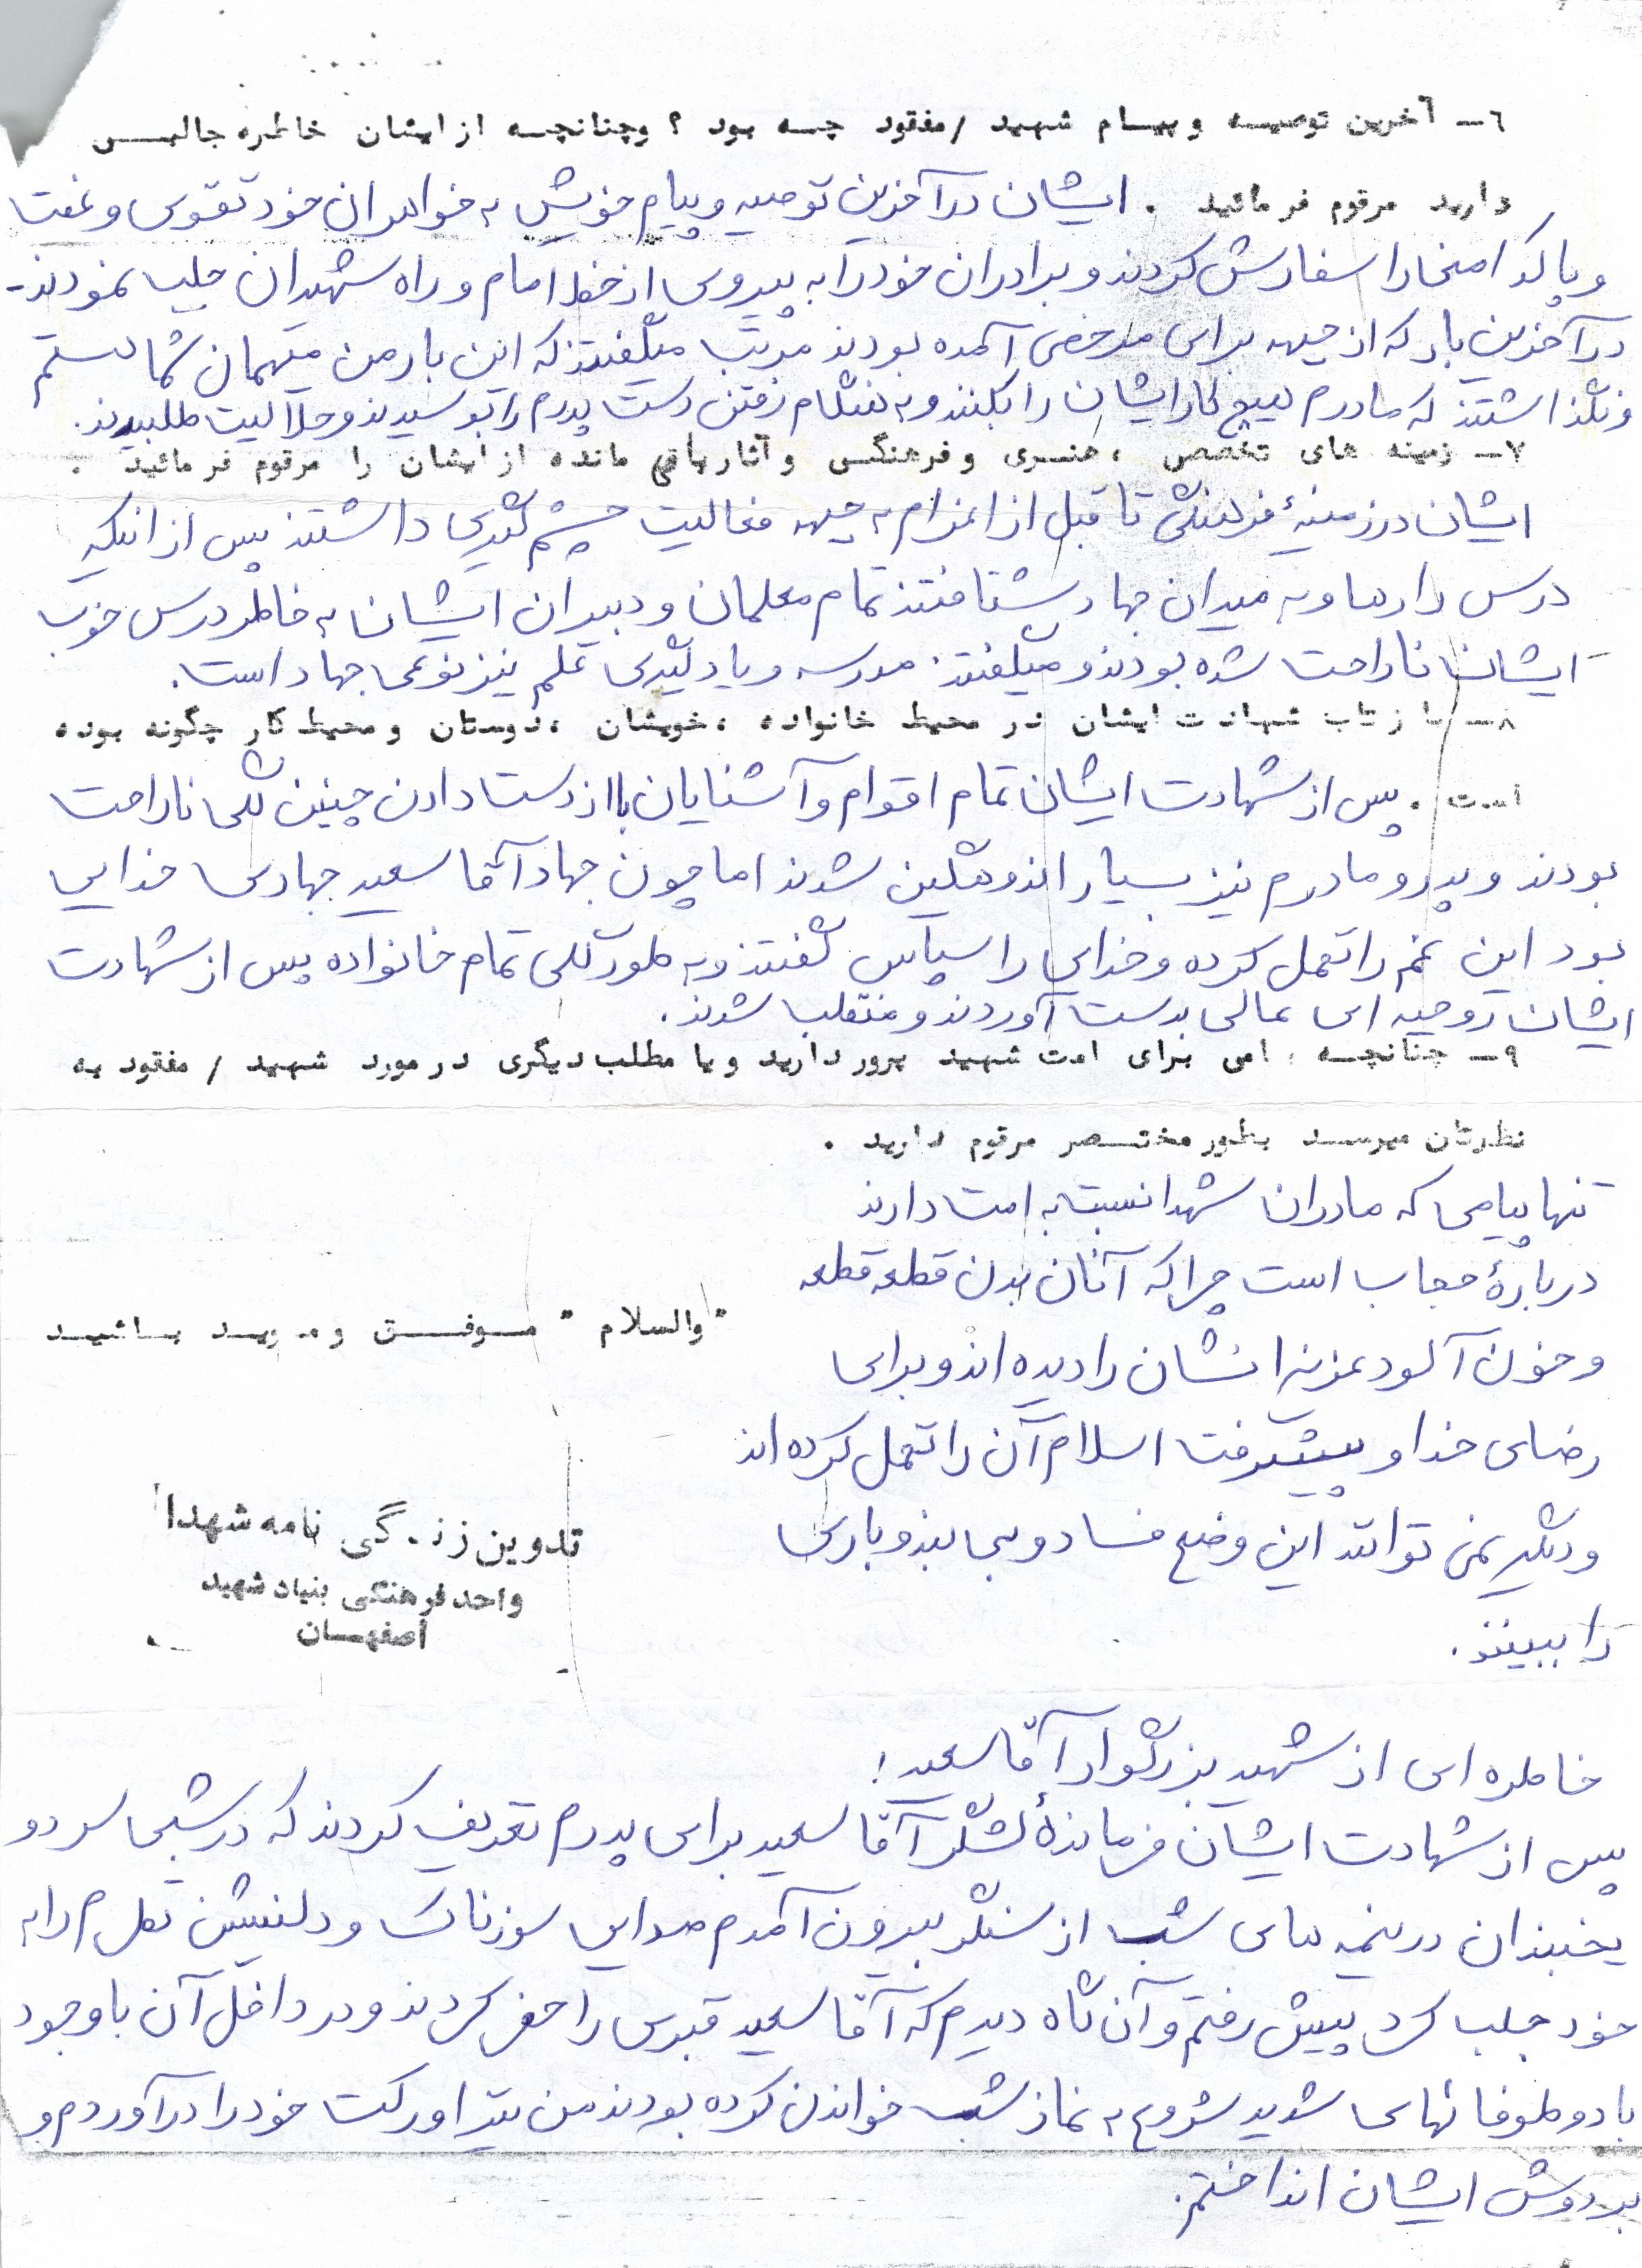 ۶ـ آخرین توصیه و پیام شهید /مفقود چه بود ؟ وچنانچه از ایشان خاطره جالبی
دارید مرقوم فرمائید . ایشان در آخرین توصیه و پیام خویش به خواهران خود تقوی و عفت
و پاکدامنی را سفارش کردند و برادران خود را به پیروی از خط امام و راه شهیدان جلب نمودند-
در آخرین بار که از جبهه برای مرخصی آمده بودند مرتب میگفتند که این بار من میهمان شما هستم
و نگذاشتند که مادرم هیچ کار ایشان را بکنند و به هنگام رفتن دست پدرم را بوسیدند و حلالیت طلبیدند.
۷ـ زمینه های تخصص ، هنری و فرهنگی و آثار باقی مانده از ایشان را مرقوم فرمائید .
ایشان در زمینهٔ فرهنگی تا قبل از اعزام به جبهه فعالیت چشم گیری داشتند پس از اینکه
درس را رها و به میدان جهاد شتافتند تمام معلمان و دبیران ایشان به خاطر درس خوب
ایشان ناراحت شده بودند و میگفتند: مدرسه و یادگیری علم نیز نوعی جهاد است.
۸ـ بازتاب شهادت ایشان در محیط خانواده ، خویشان ، دوستان و محیط کار چگونه بوده
است . پس از شهادت ایشان تمام اقوام و آشنایان با از دست دادن چنین گلی ناراحت
بودند و پدر و مادرم نیز بسیار اندوهگین شدند اما چون جهاد آقا سعید جهادی خدایی
بود این غم را تحمل کرده و خدای را سپاس گفتند و به طور کلی تمام خانواده پس از شهادت
ایشان روحیه ای عالی بدست آوردند و منقلب شدند.
۹ـ چنانچه امی برای امت شهید پرور دارید و یا مطلب دیگری در مورد شهید / مفقود به
نظرتان میرسد بطور مختصر مرقوم دارید .
تنها پیامی که مادران شهدا نسبت به امت دارند
دربارهٔ حجاب است چرا که آنان بدن قطعه قطعه
"والسلام" موفق و موید باشید
و خون آلود عزیزانشان را دیده اند و برای
رضای خدا و پیشرفت اسلام آن را تحمل کرده اند
و دیگر نمی توانند این وضع فساد و بی بندوباری
را ببینند.
تدوین زندگی نامه شهدا
واحد فرهنگی بنیاد شهید
اصفهان
خاطره ای از شهید بزرگوار آقا سعید:
پس از شهادت ایشان فرماندهٔ لشگر آقا سعید برای پدرم تعریف کردند که در شبی سرد و
یخبندان در نیمه های شب از سنگر بیرون آمدم صدایی سوزناک و دلنشین نظرم را به
خود جلب کرد پیش رفتم و آن گاه دیدم که آقا سعید قبری را حفر کردند و در داخل آن با وجود
باد و طوفانهای شدید شروع به نماز شب خواندن کرده بودند من نیز اورکت خود را در آوردم و
بر دوش ایشان انداختم.